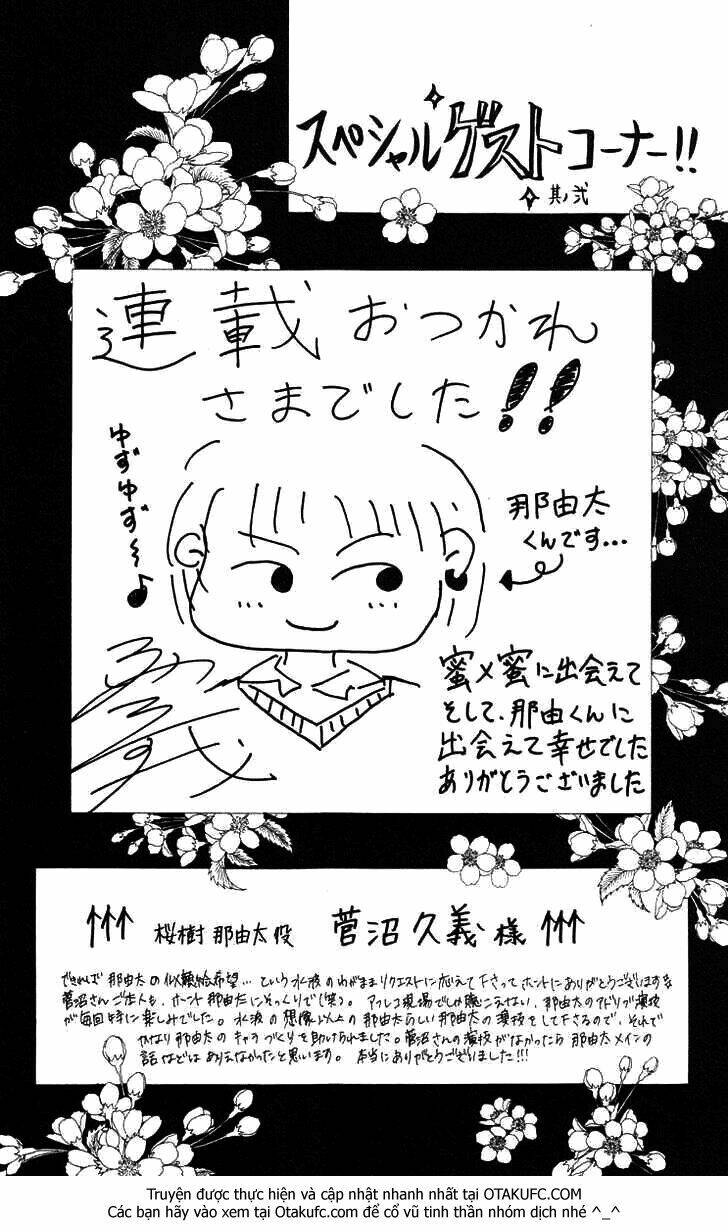 スペシャルゲストコーナー!!
其ノ弐
連載おつかれ
さまでした!!
ゆずゆず〜♪
那由太
くんです…
蜜×蜜に出会えて
そして、那由くんに
出会えて幸せでした
ありがとうございました
↑↑↑ 桜樹那由太役 菅沼久義様 ↑↑↑
できれば那由太の似顔絵希望…という水波のわがままリクエストに応えて下さってホントにありがとうございます
菅沼さんご本人も、ホント那由太にそっくりで(笑)。アフレコ現場でしか聴こえない、那由太のアドリブ演技
が毎回特に楽しみでした。水波の想像以上の那由太らしい那由太の演技をして下さるので、それで
かなり那由太のキャラづくりを助けられました。菅沼さんの演技がなかったら那由太メインの
話などはありえなかったと思います。本当にありがとうございました!!!
Truyện được thực hiện và cập nhật nhanh nhất tại OTAKUFC.COM
Các bạn hãy vào xem tại Otakufc.com để cổ vũ tinh thần nhóm dịch nhé ^_^